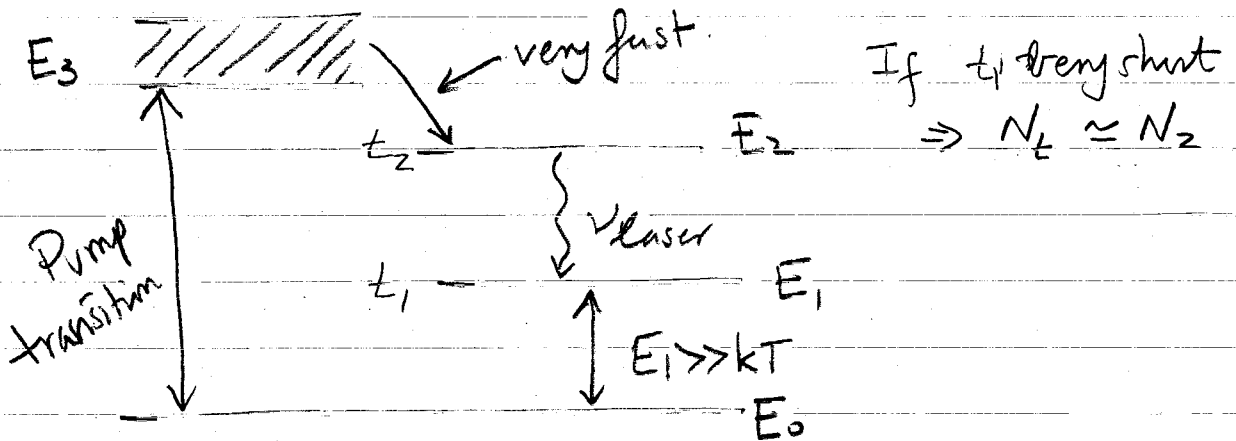 E₃
very fast.
If t₁ very short
⇒ N_t ≃ N₂
t₂
E₂
Pump
transition
ν laser
t₁
E₁
E₁>>kT
E₀